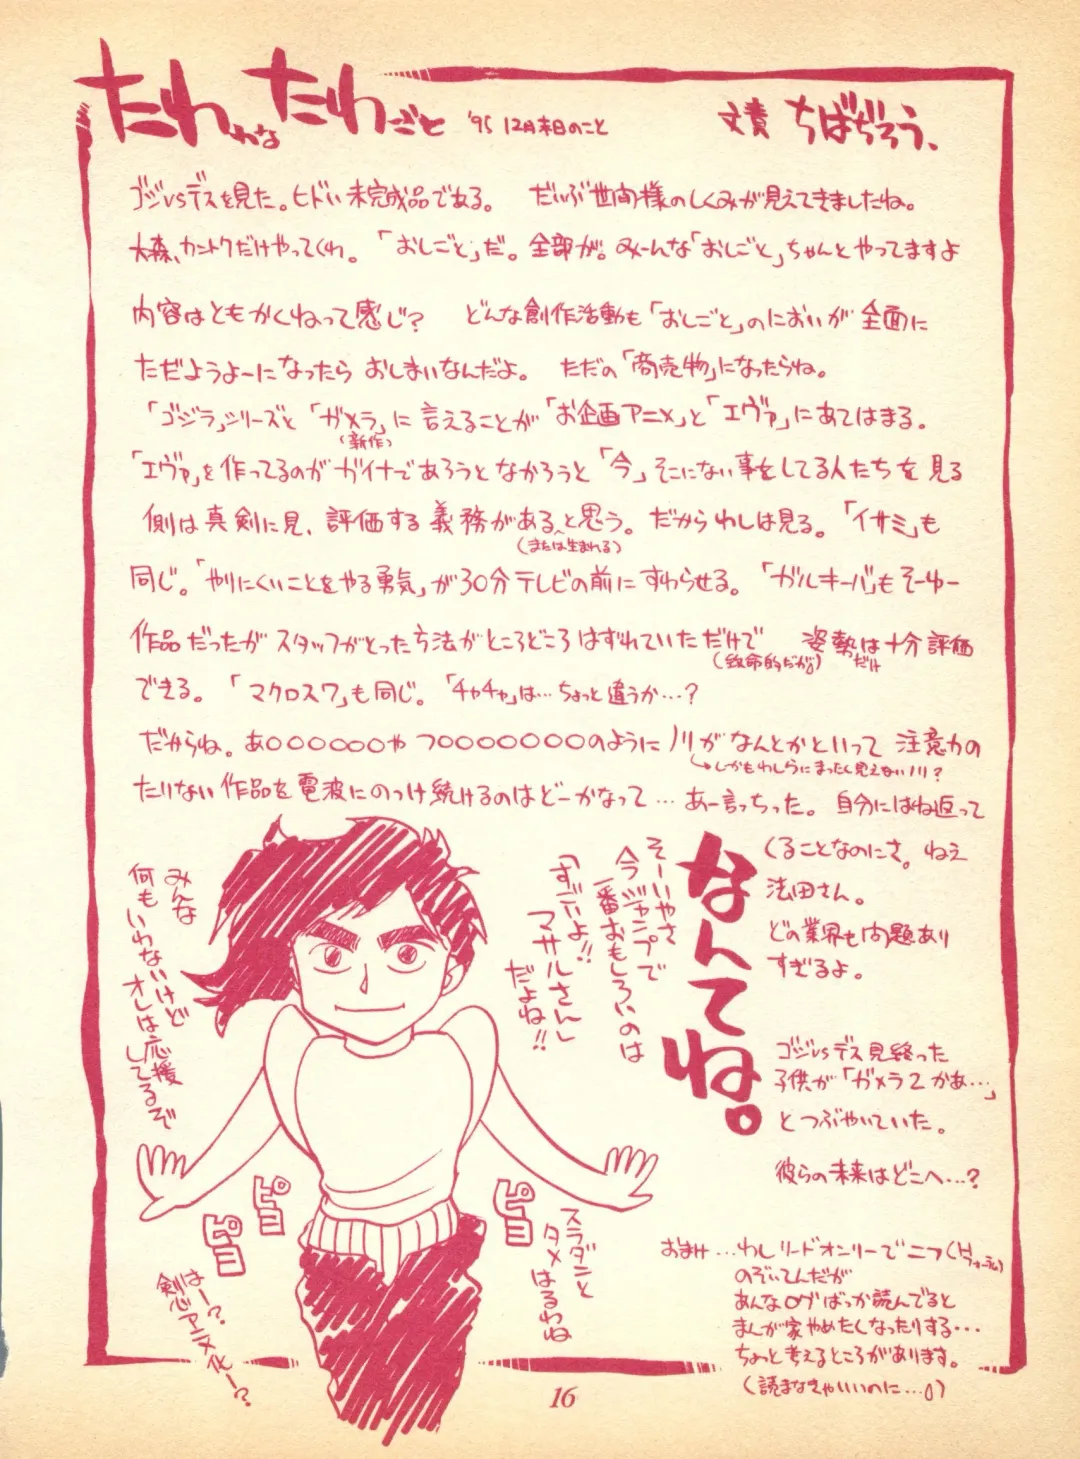 たわわなたわごと '95 12月末日のこと 文責 ちばぢろう、
ゴジvsデスを見た。ヒドい未完成品である。 だいぶ世間様のしくみが見えてきましたね。
大森、カントクだけやってくれ。 「おしごと」だ。全部が。みーんな「おしごと」ちゃんとやってますよ
内容はともかくねって感じ? どんな創作活動も「おしごと」のにおいが全面に
ただようよーになったらおしまいなんだよ。 ただの「商売物」になったらね。
「ゴジラ」シリーズと「ガメラ」に言えることが「お企画アニメ」と「エヴァ」にあてはまる。
(新作)
「エヴァ」を作ってるのがガイナであろうとなかろうと「今」そこにない事をしてる人たちを見る
側は真剣に見、評価する義務がある、と思う。だからわしは見る。「イサミ」も
(または生まれる)
同じ。「やりにくいことをやる勇気」が30分テレビの前にすわらせる。「ガルキーバ」もそーゆー
作品だったがスタッフがとった方法がところどころはずれていただけで 姿勢は十分評価
(致命的だが。) だけ
できる。「マクロス7」も同じ。「チャチャ」は…ちょっと違うか…?
だからね。あ○○○○○○やつ○○○○○○○○のようにノリがなんとかといって注意力の
しかもわしらにまったく見えないノリ?
たりない作品を電波にのっけ続けるのはどーかなって…あー言っちった。自分にはね返って
くることなのにさ。ねえ
法田さん。
どの業界も問題あり
すぎるよ。
なんてね。
そーいやさ
今ジャンプで
一番おもしろいのは
「すごいよ!!
マサルさん」
だよね!!
みんな
何もいわないけど
オレは応援
してるぞ
ゴジvsデス見終った
子供が「ガメラ2かあ…」
とつぶやいていた。
彼らの未来はどこへ…?
ピヨ
ピヨ
ピヨ
スラダンと
タメはるわね
はー?
剣心アニメ化ー?
おまけ…わしリードオンリーでニフ(Hフォーラム)
のぞいてんだが
あんなログばっか読んでると
まんが家やめたくなったりする…
ちょっと考えるところがあります。
(読まなきゃいいのに…。)
16